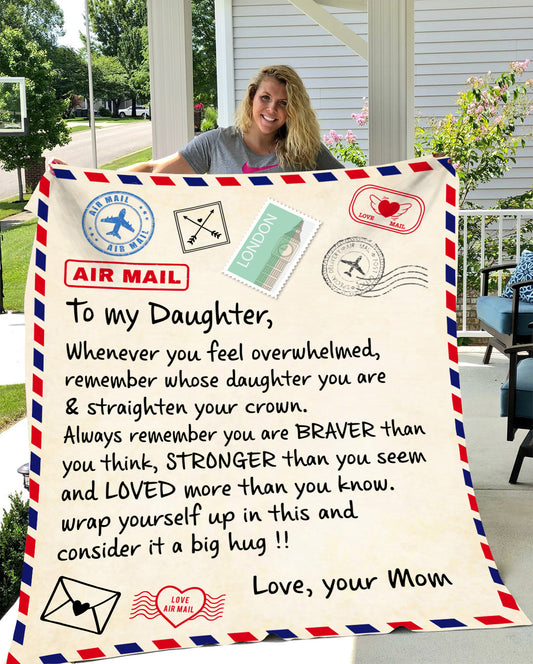 AIR MAIL
AIR MAIL
LONDON
LOVE MAIL
AIR MAIL
To my Daughter,
Whenever you feel overwhelmed,
remember whose daughter you are
& straighten your crown.
Always remember you are BRAVER than
you think, STRONGER than you seem
and LOVED more than you know.
wrap yourself up in this and
consider it a big hug !!
Love, your Mom
LOVE
AIR MAIL